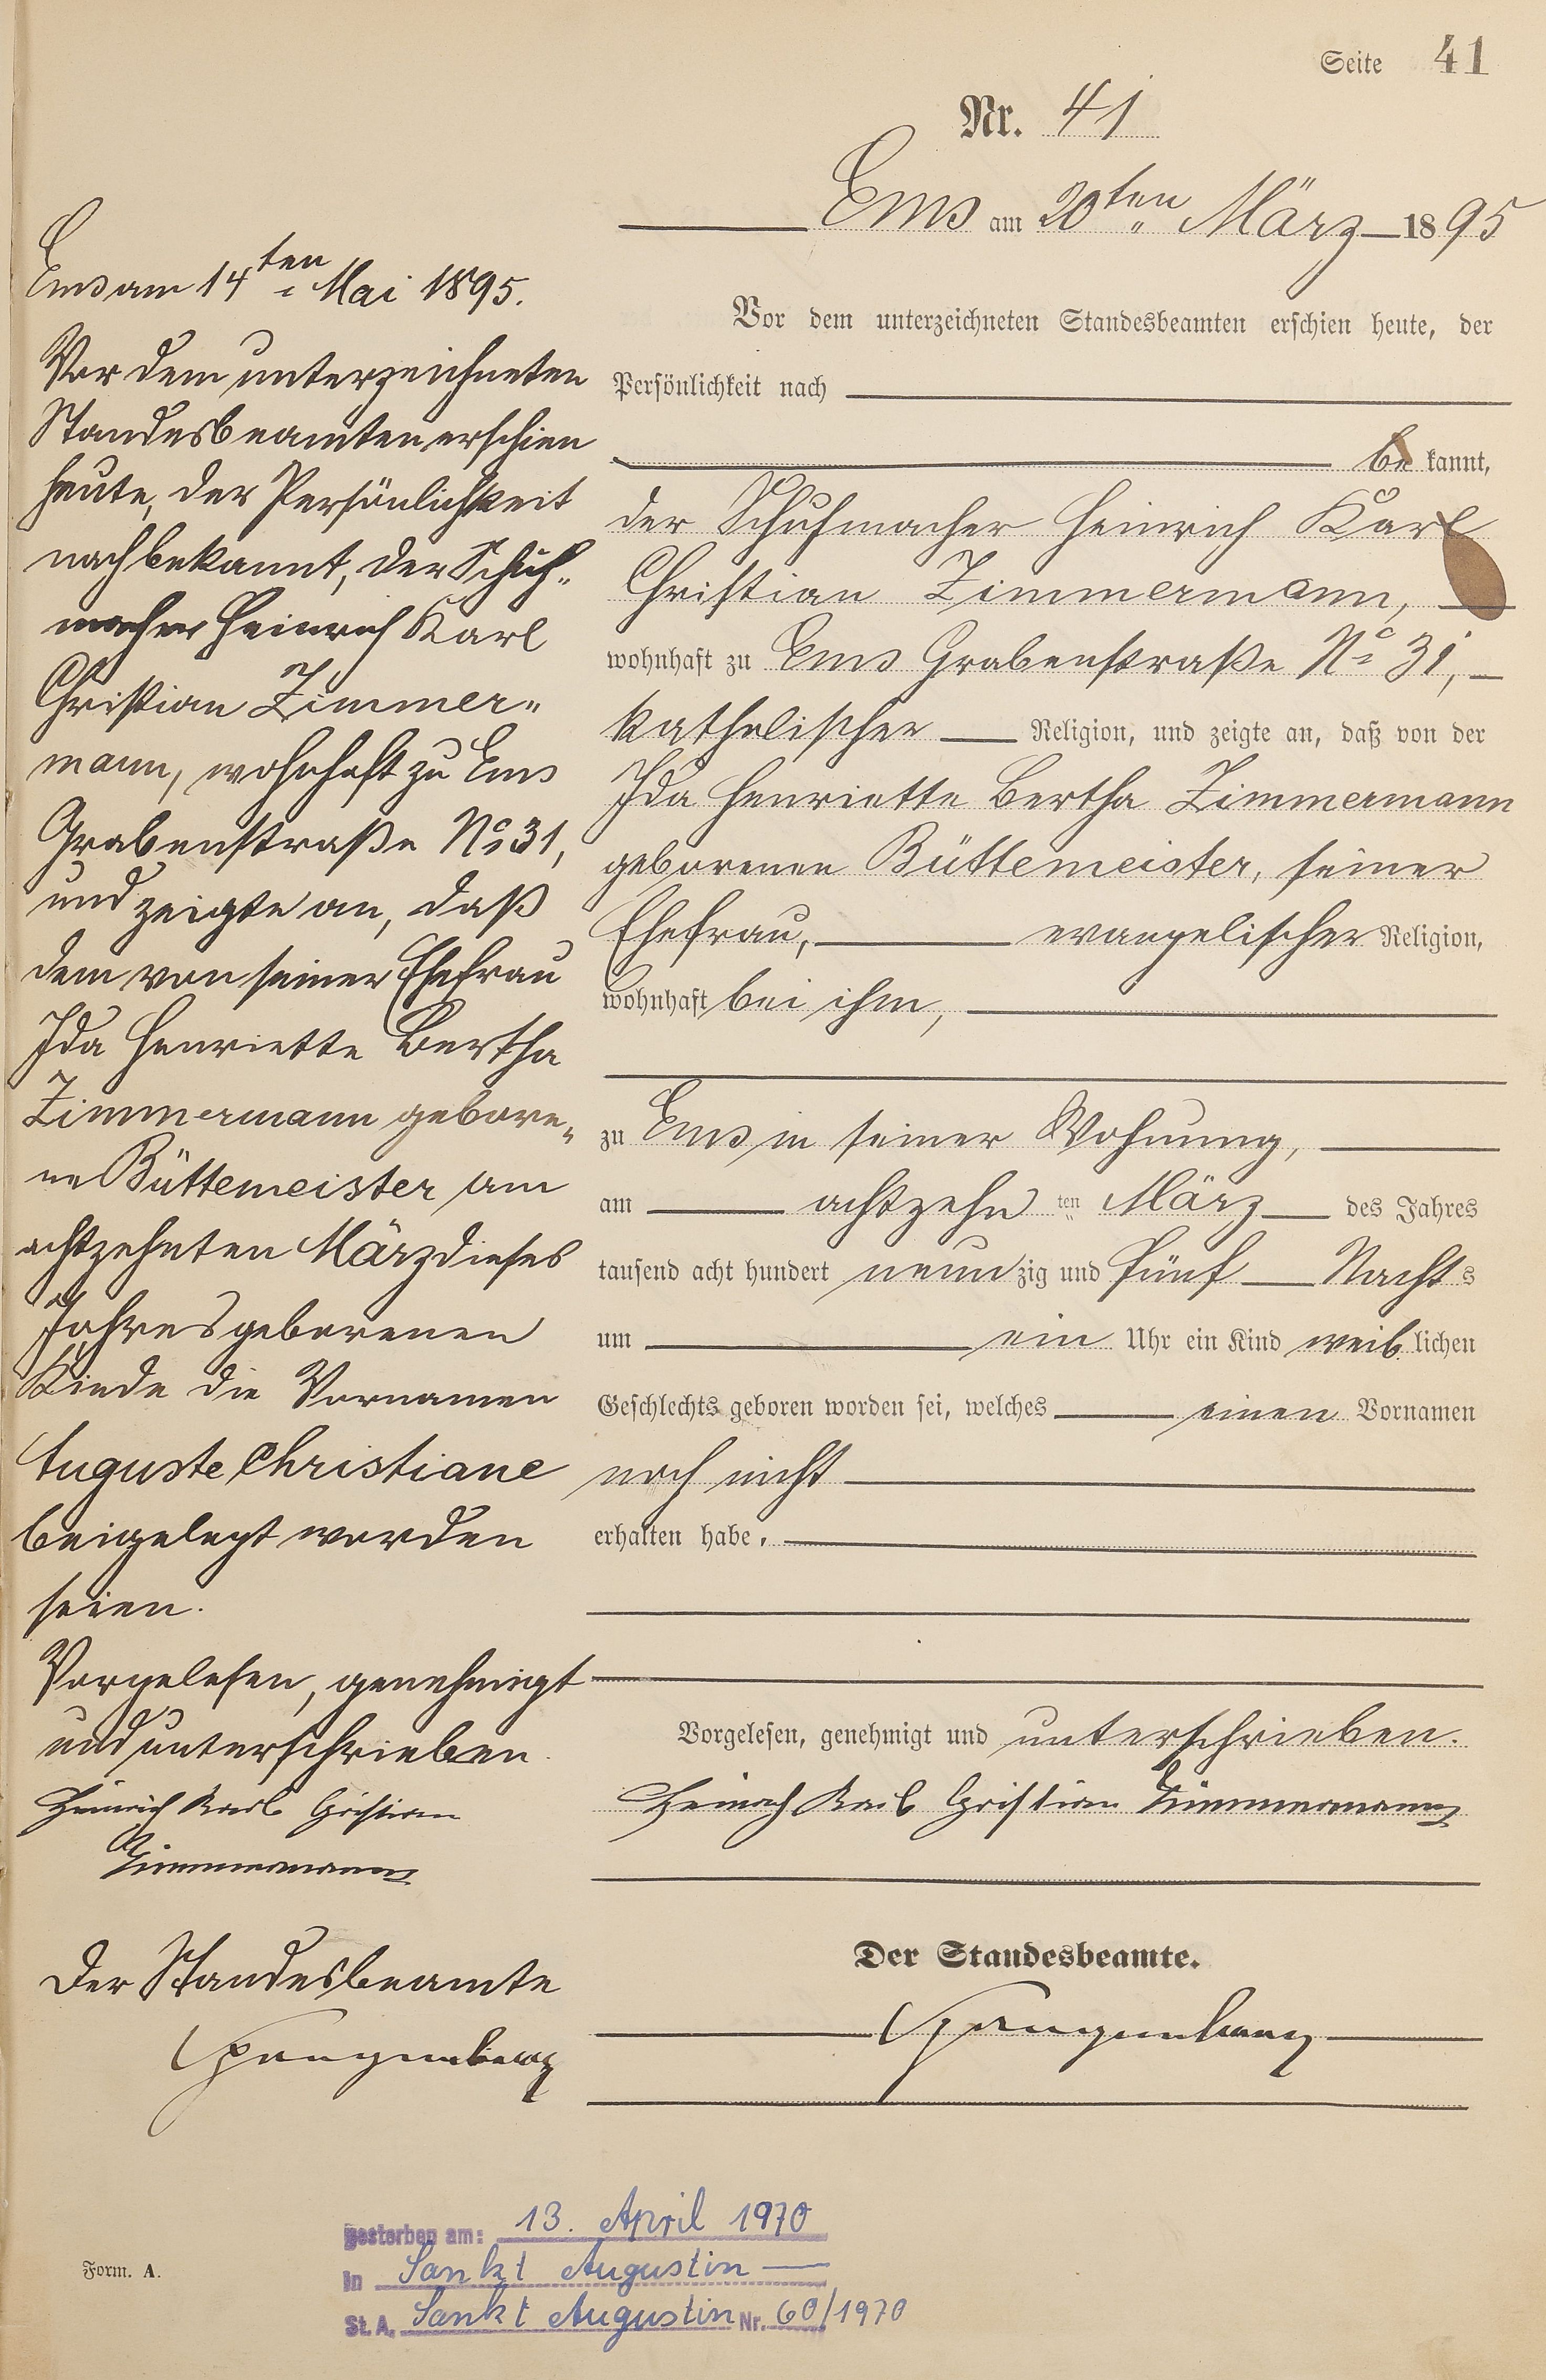 Seite 41
Nr. 41
Ems am 20ten März 1895
Vor dem unterzeichneten Standesbeamten erschien heute, der
Persönlichkeit nach
be kannt,
der Schuhmacher Heinrich Karl
Christian Zimmermann,
wohnhaft zu Ems Grabenstraße No 31,
katholischer Religion, und zeigte an, daß von der
Ida Henriette Bertha Zimmermann
geborenen Büttemeister, seiner
Ehefrau, evangelischer Religion,
wohnhaft bei ihm,
zu Ems in seiner Wohnung,
am achtzehn ten März des Jahres
tausend acht hundert neun zig und fünf Nachts
um ein Uhr ein Kind weib lichen
Geschlechts geboren worden sei, welches einen Vornamen
noch nicht
erhalten habe.
Vorgelesen, genehmigt und unterschrieben.
Heinrich Karl Christian Zimmermann
Der Standesbeamte.
Spangenberg
Ems am 14ten Mai 1895.
Vor dem unterzeichneten
Standesbeamten erschien
heute, der Persönlichkeit
nach bekannt, der Schuh-
macher Heinrich Karl
Christian Zimmer-
mann, wohnhaft zu Ems
Grabenstraße No 31,
und zeigte an, daß
dem von seiner Ehefrau
Ida Henriette Bertha
Zimmermann gebore-
ne Büttemeister am
achtzehnten März dieses
Jahres geborenen
Kinde die Vornamen
Auguste Christiane
beigelegt worden
seien.
Vorgelesen, genehmigt
und unterschrieben.
Heinrich Karl Christian
Zimmermann
Der Standesbeamte
Spangenberg
gestorben am: 13. April 1970
in Sankt Augustin
St. A. Sankt Augustin Nr. 60/1970
Form. A.